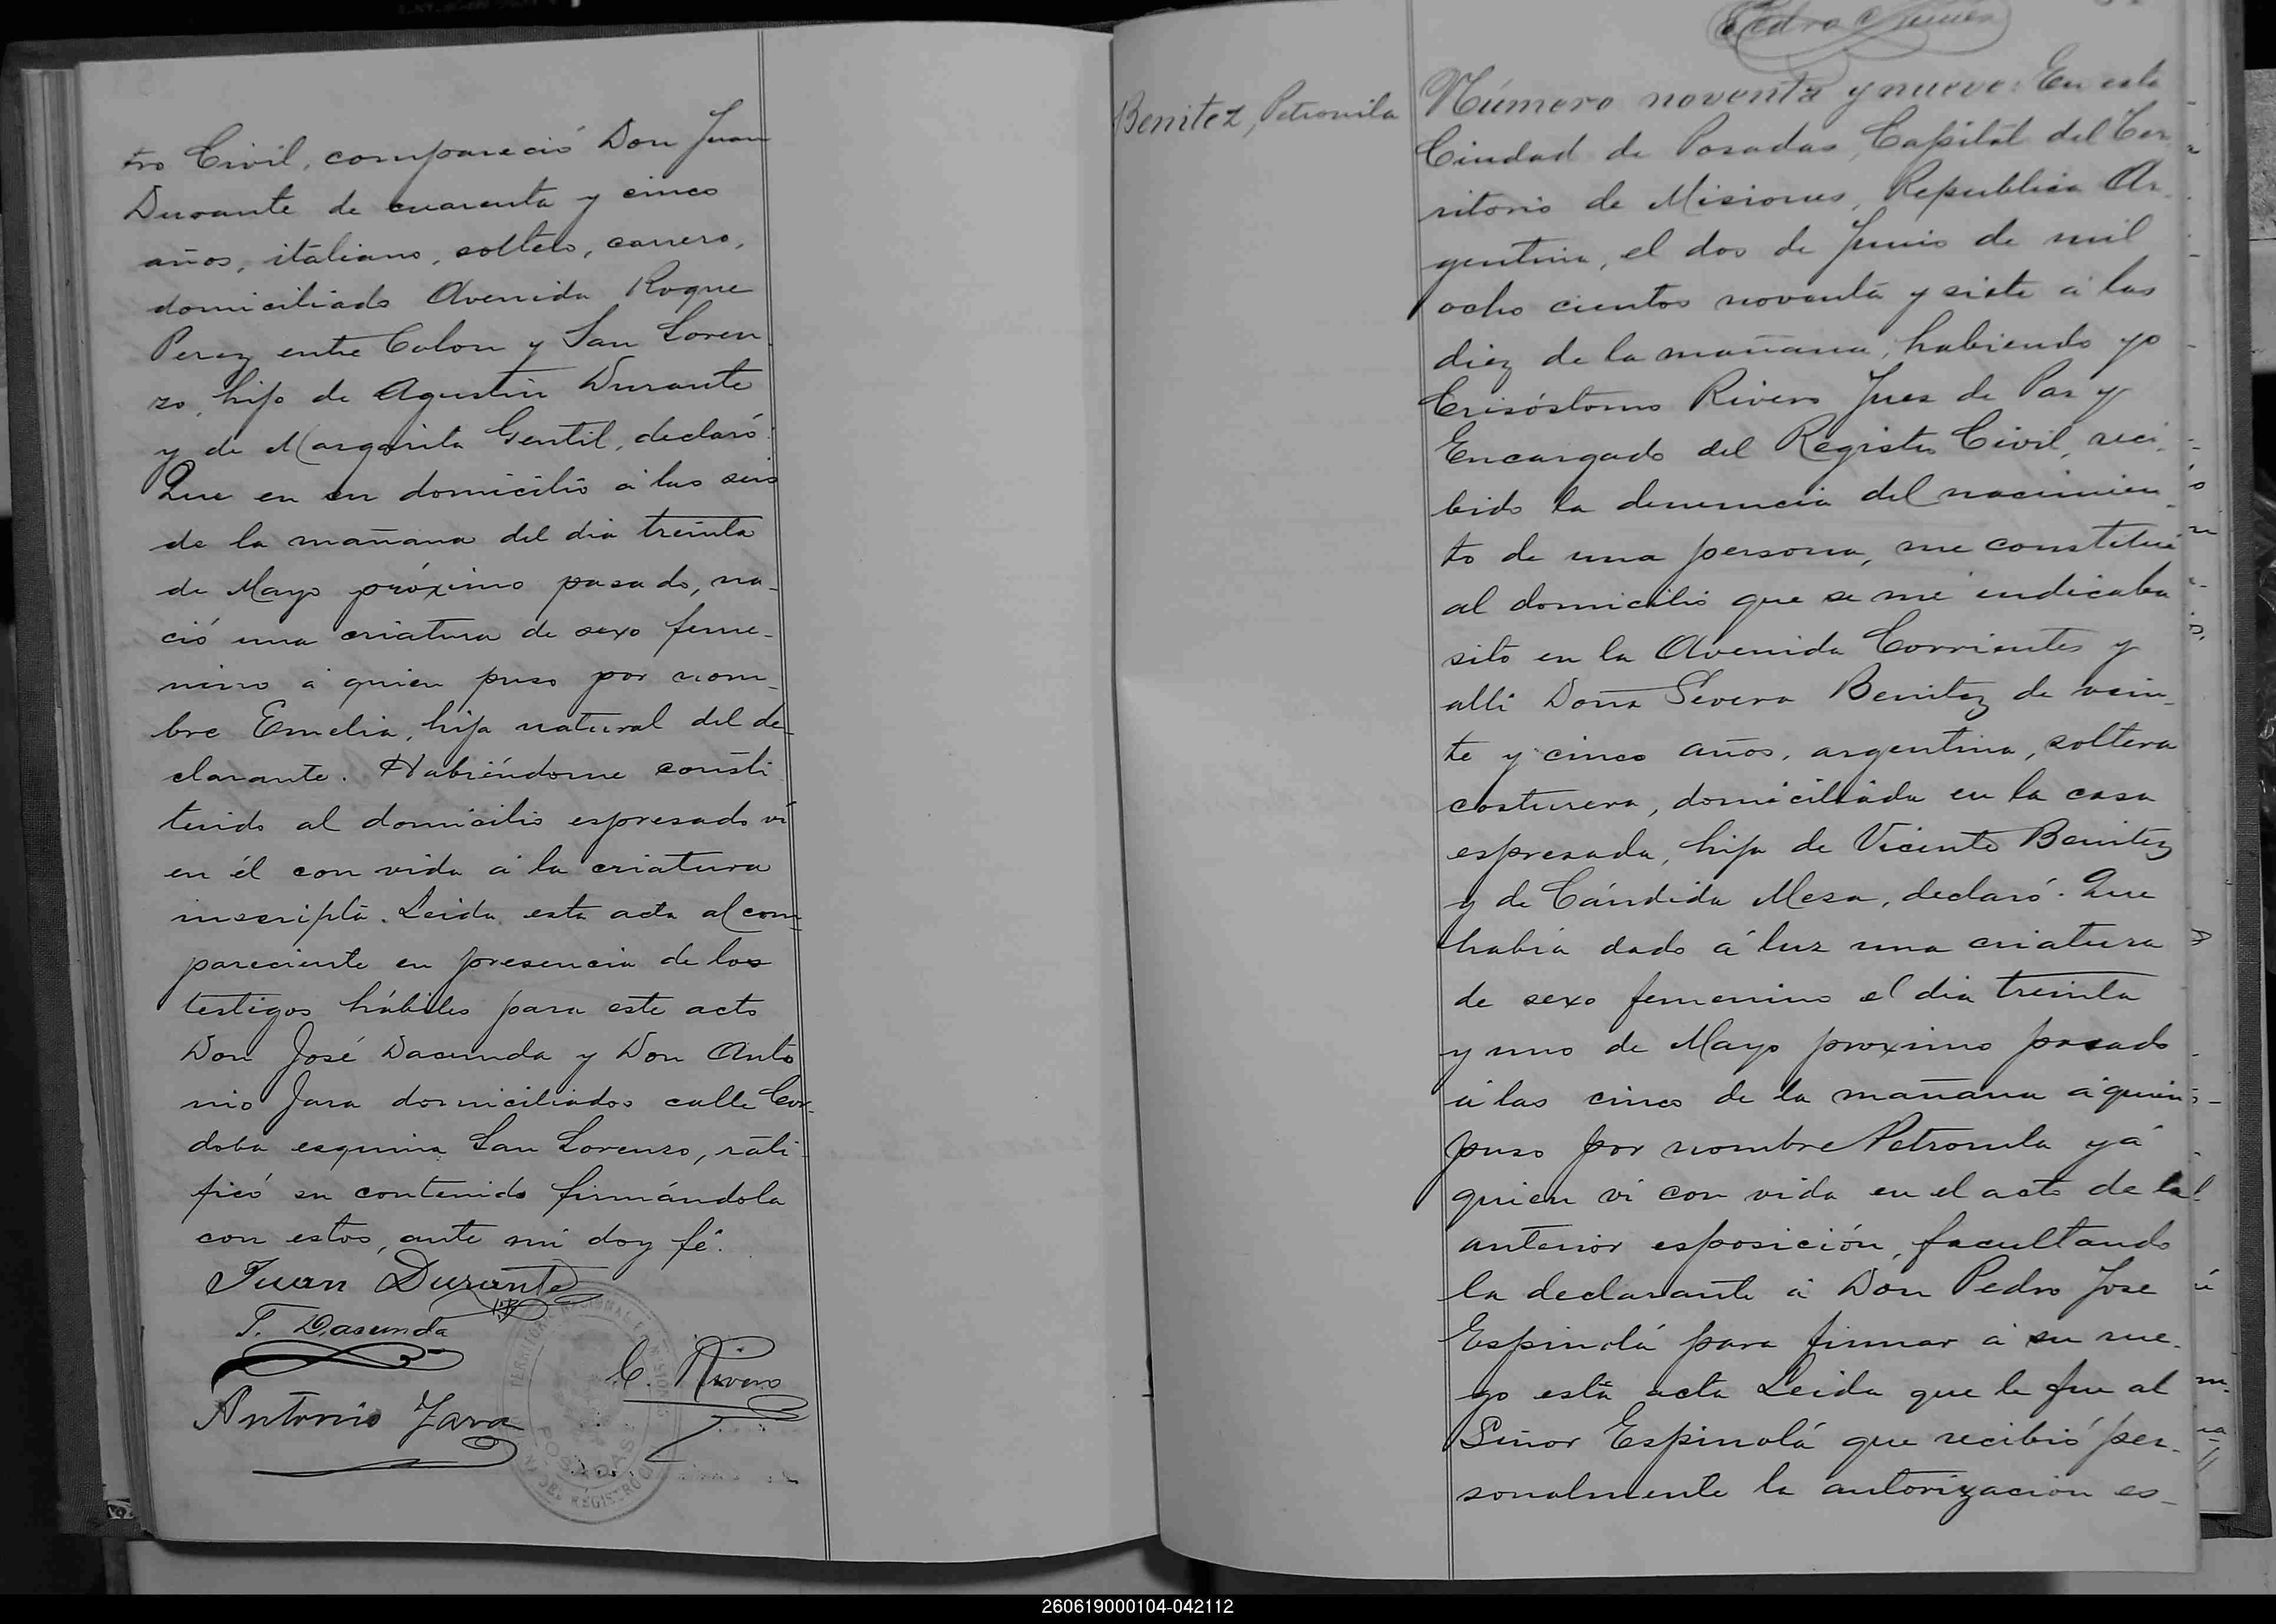 tro Civil, compareció Don Juan
Durante de cuarenta y cinco
años, italiano, soltero, carrero,
domiciliado Avenida Roque
Perez entre Colon y San Loren
zo, hijo de Agustin Durante
y de Margarita Gentil, declaró:
Que en su domicilio á las seis
de la mañana del dia treinta
de Mayo próximo pasado, na-
ció una criatura de sexo feme-
nino á quien puso por nom-
bre Emelia, hija natural del de-
clarante. Habiéndome consti
tuido al domicilio espresado ví
en él con vida á la criatura
inscripta. Leida esta acta al com-
pareciente en presencia de los
testigos hábiles para este acto
Don José Dasunda y Don Anto
nio Jara domiciliados calle Cor-
doba esquina San Lorenzo, rati-
ficó su contenido firmándola
con estos, ante mi doy fé.
Juan Durante
Dasunda
C. Rivero
Antonio Jara
POSADAS
Benitez, Petronila
Número noventa y nueve: En esta
Ciudad de Posadas, Capital del Ter
ritorio de Misiones, Republica Ar-
gentina, el dos de Junio de mil
ocho cientos noventa y siete á las
diez de la mañana, habiendo yo
Crisóstomo Rivero Juez de Paz y
Encargado del Registro Civil, reci-
bido la denuncia del nacimien-
to de una persona, me constitui
al domicilio que se me indicaba
sito en la Avenida Corrientes y
alli Doña Severa Benitez de vein-
te y cinco años, argentina, soltera
costurera, domiciliada en la casa
espresada, hija de Vicente Benitez
y de Cándida Mesa, declaró: Que
habia dado á luz una criatura
de sexo femenino el dia treinta
y uno de Mayo proximo pasado
á las cinco de la mañana á quien
puso por nombre Petronila y á
quien ví con vida en el acto de la
anterior esposición, facultando
la declarante á Don Pedro Jose
Espinolá para firmar á su rue-
go esta acta Leida que le fue al
Señor Espinolá que recibió per-
sonalmente la autorizacion es-
260619000104-042112